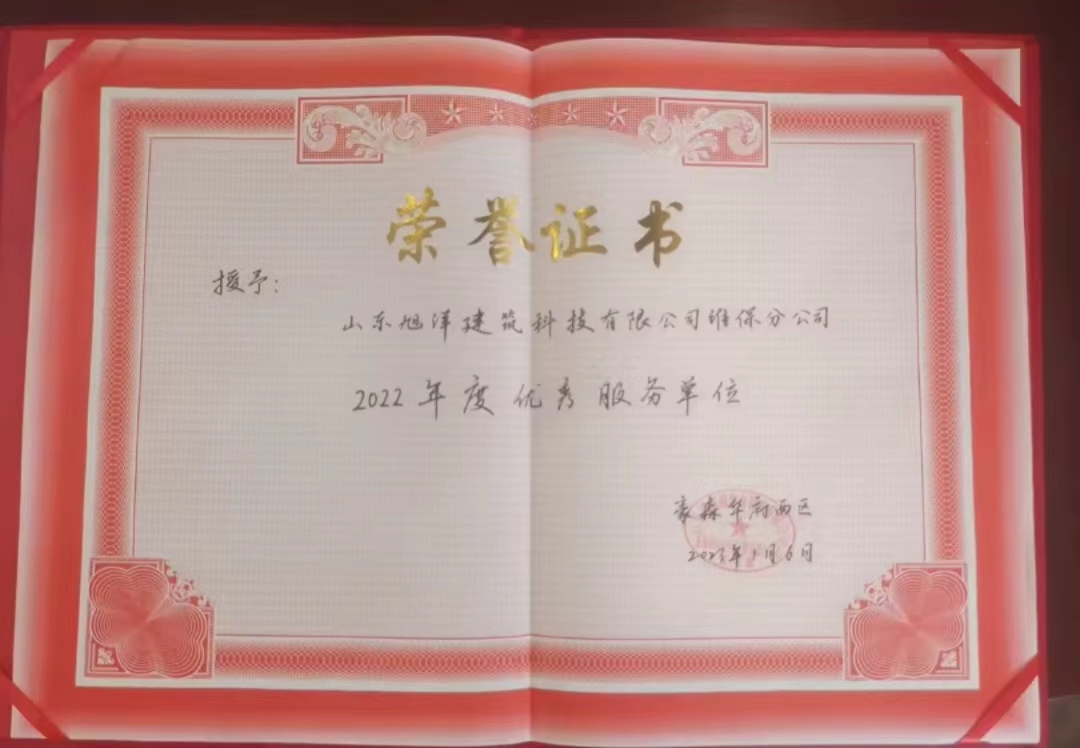 荣誉证书
授予:
山东旭洋建筑科技有限公司维保分公司
2022年度优秀服务单位
豪森华府西区
2023年1月6日